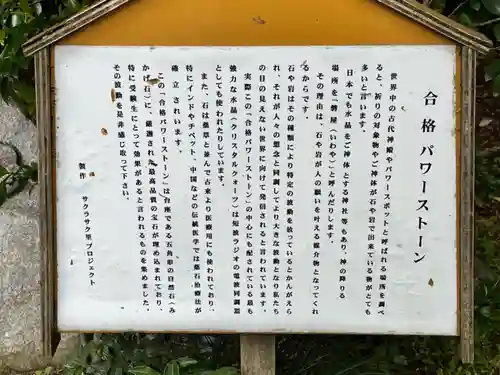 合格パワーストーン
世界中の古代神殿やパワースポットと呼ばれる場所を調べ
ると、祈りの対象物やご神体が石や岩で出来ている物がとても
多いと言います。
日本でも水晶をご神体とする神社等もあり、神の降りる
場所を「磐屋（いわや）」と呼んだりします。
その理由は、石や岩が人の願いを叶える媒介物となってくれ
るからです。
石や岩はその種類により特定の波動を放っているとかんがえら
れ、それが人々の想念と同調してより大きな波動となり私たち
の目の見えない世界に向けて発信されると言われています。
実際この「合格パワーストーン」の中心にも配されている最も
強力な水晶（クリスタルクォーツ）は短波ラジオの電波同調器
としても使われたりしています。
また、石は薬草と並んで古来より医療用にも使われており、
特にインドやチベット、中国などの伝統医学では薬石治療法が
確立されています。
この「合格パワーストーン」は台座である五角形の自然石（み
かげ石）に、厳選された最高品質の宝石が埋め込まれており、
特に受験生にとって効果があると言われるものを集めました。
その波動を是非感じ取って下さい。
製作
サクラサク里プロジェクト